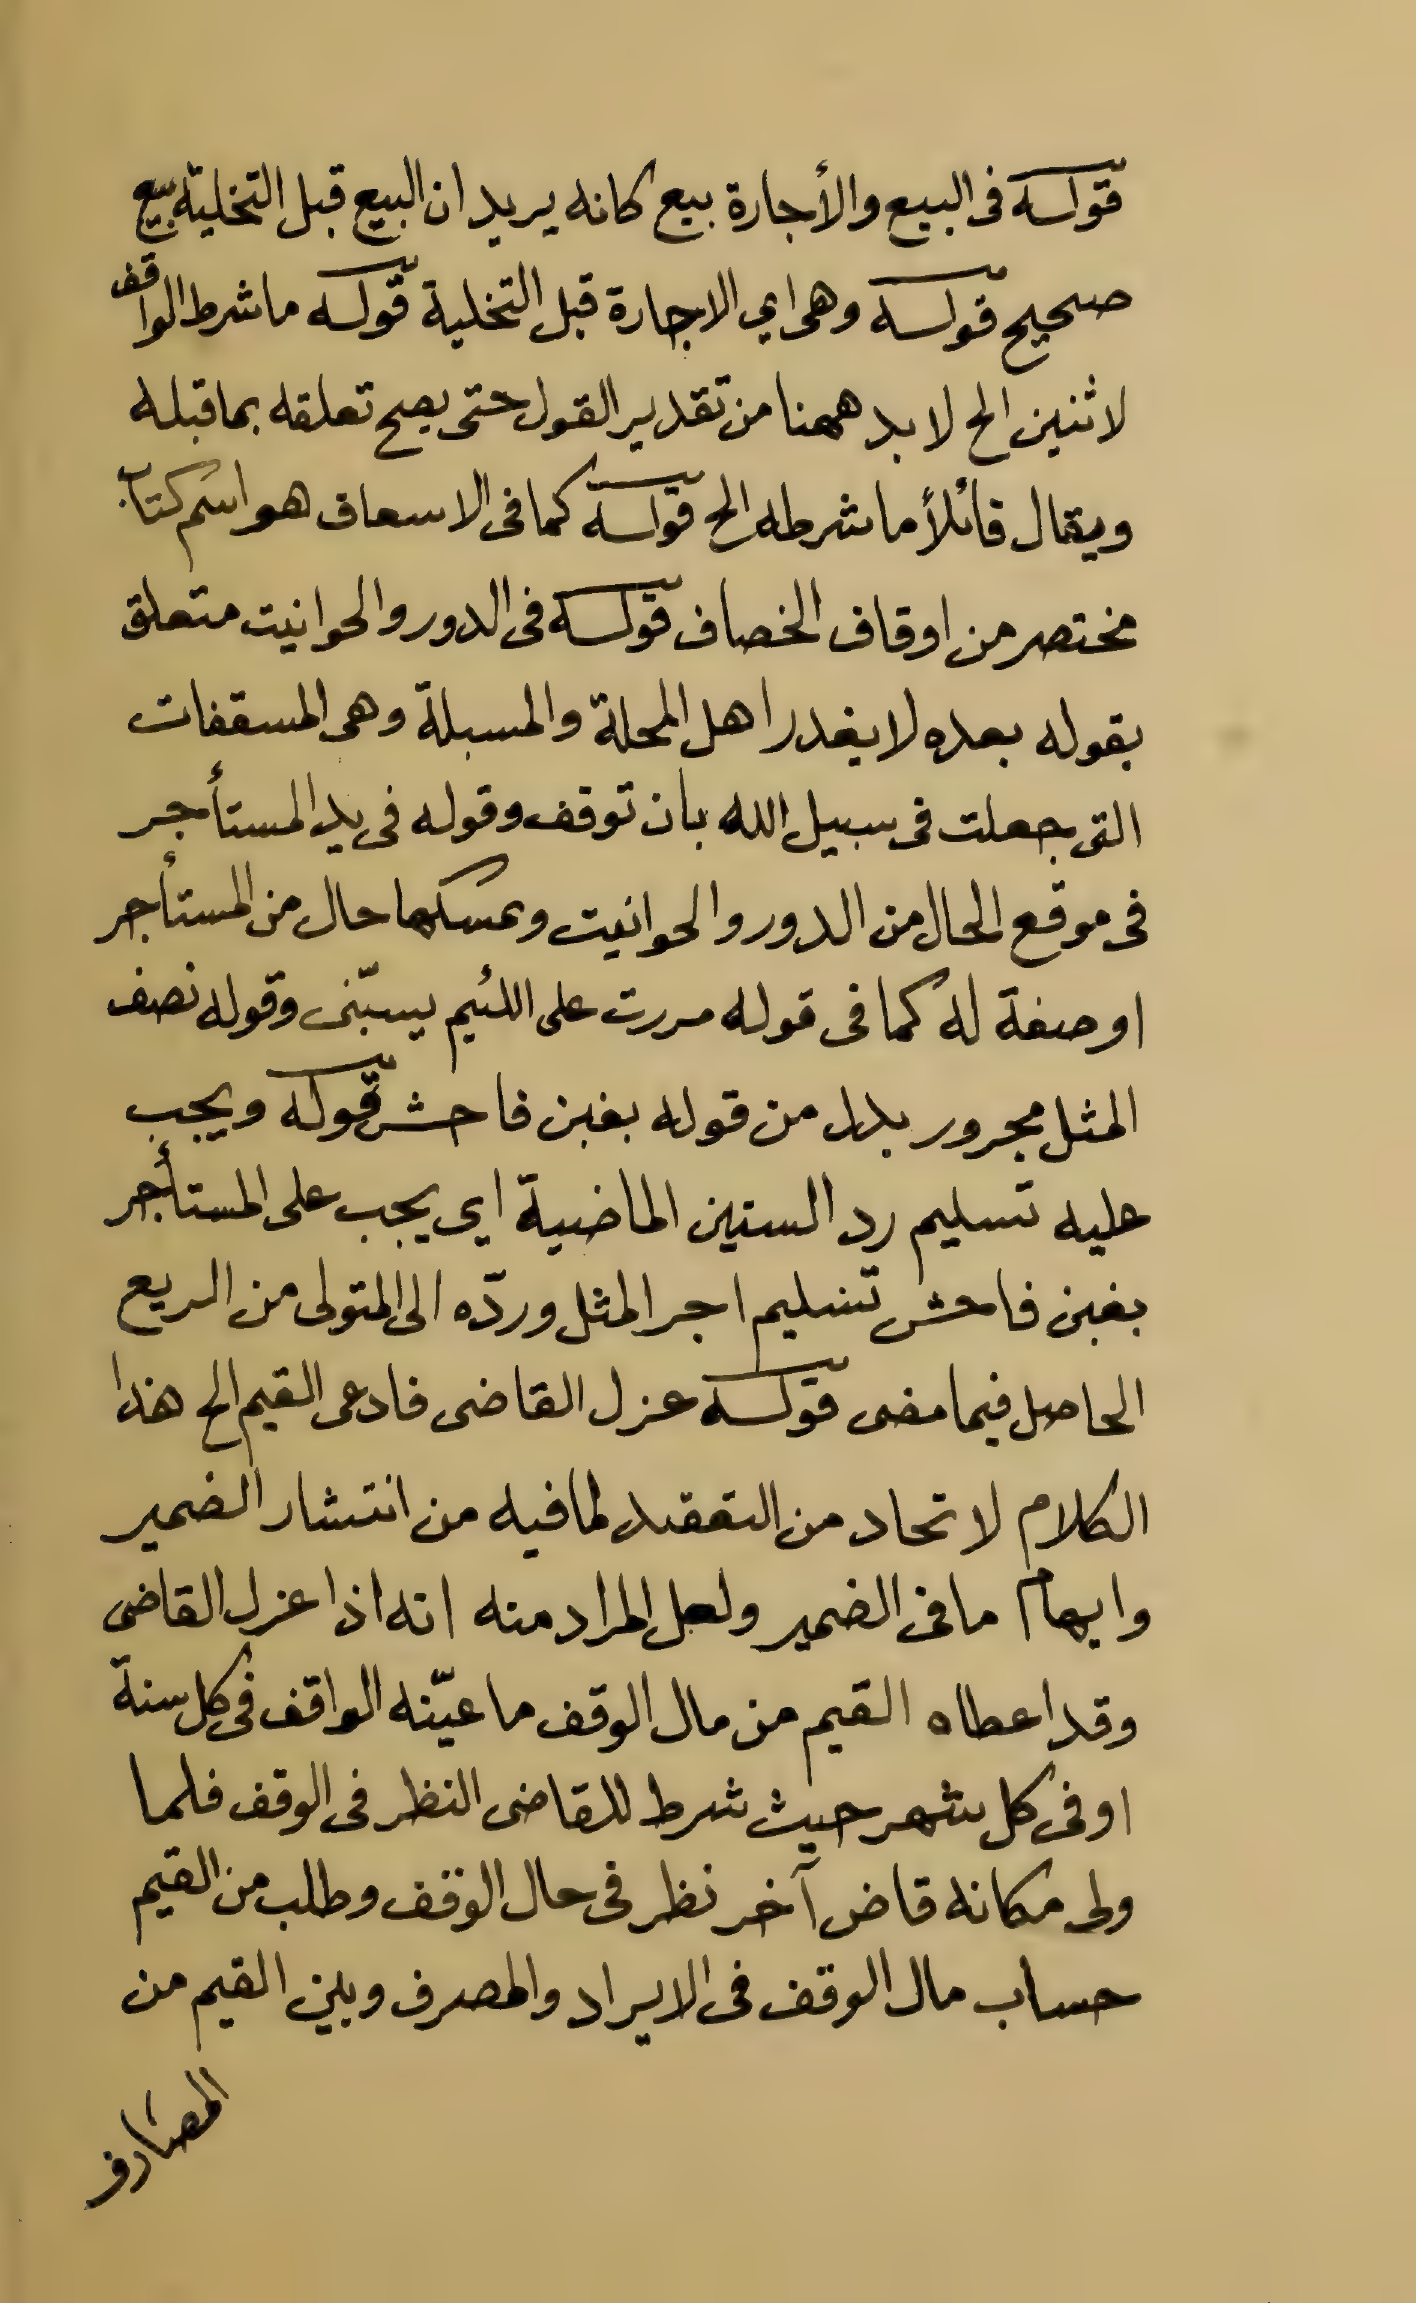 قوله فى البيع والأجارة بيع كانه يريد ان البيع قبل التخلية بيع
صحيح قوله وهى اي الاجارة قبل التخلية قوله ما شرط الواقف
لاثنين الخ لا بد ههنا من تقدير القول حتى يصح تعلقه بما قبله
ويقال قائلأ ما شرطه الخ قوله كما فى الاسعاف هو اسم كتاب
مختصر من اوقاف الخصاف قوله فى الدور والحوانيت متعلق
بقوله بعده لا يغدر اهل المحلة والمسبلة وهى المسقفات
التى جعلت فى سبيل الله بان توقف وقوله فى يد المستأجر
فى موقع الحال من الدور والحوانيت ويمسكها حال من المستأجر
او صفة له كما فى قوله مررت على اللئيم يسبّنى وقوله نصف
المثل مجرور بدل من قوله بغبن فاحش قوله ويجب
عليه تسليم رد السنين الماضية اي يجب على المستأجر
بغبن فاحش تسليم اجر المثل وردّه الى المتولى من الريع
الحاصل فيما مضى قوله عزل القاضى فادعى القيم الخ هذا
الكلام لا تحاد من التعقيد لما فيه من انتشار الضمير
وايهام ما فى الضمير ولعل المراد منه انه اذا عزل القاضى
وقد اعطاه القيم من مال الوقف ما عيّنه الواقف فى كل سنة
او فى كل شهر حيث شرط للقاضى النظر فى الوقف فلما
ولى مكانه قاض آخر نظر فى حال الوقف وطلب من القيم
حساب مال الوقف فى الايراد والمصرف وبين القيم من
المصارف